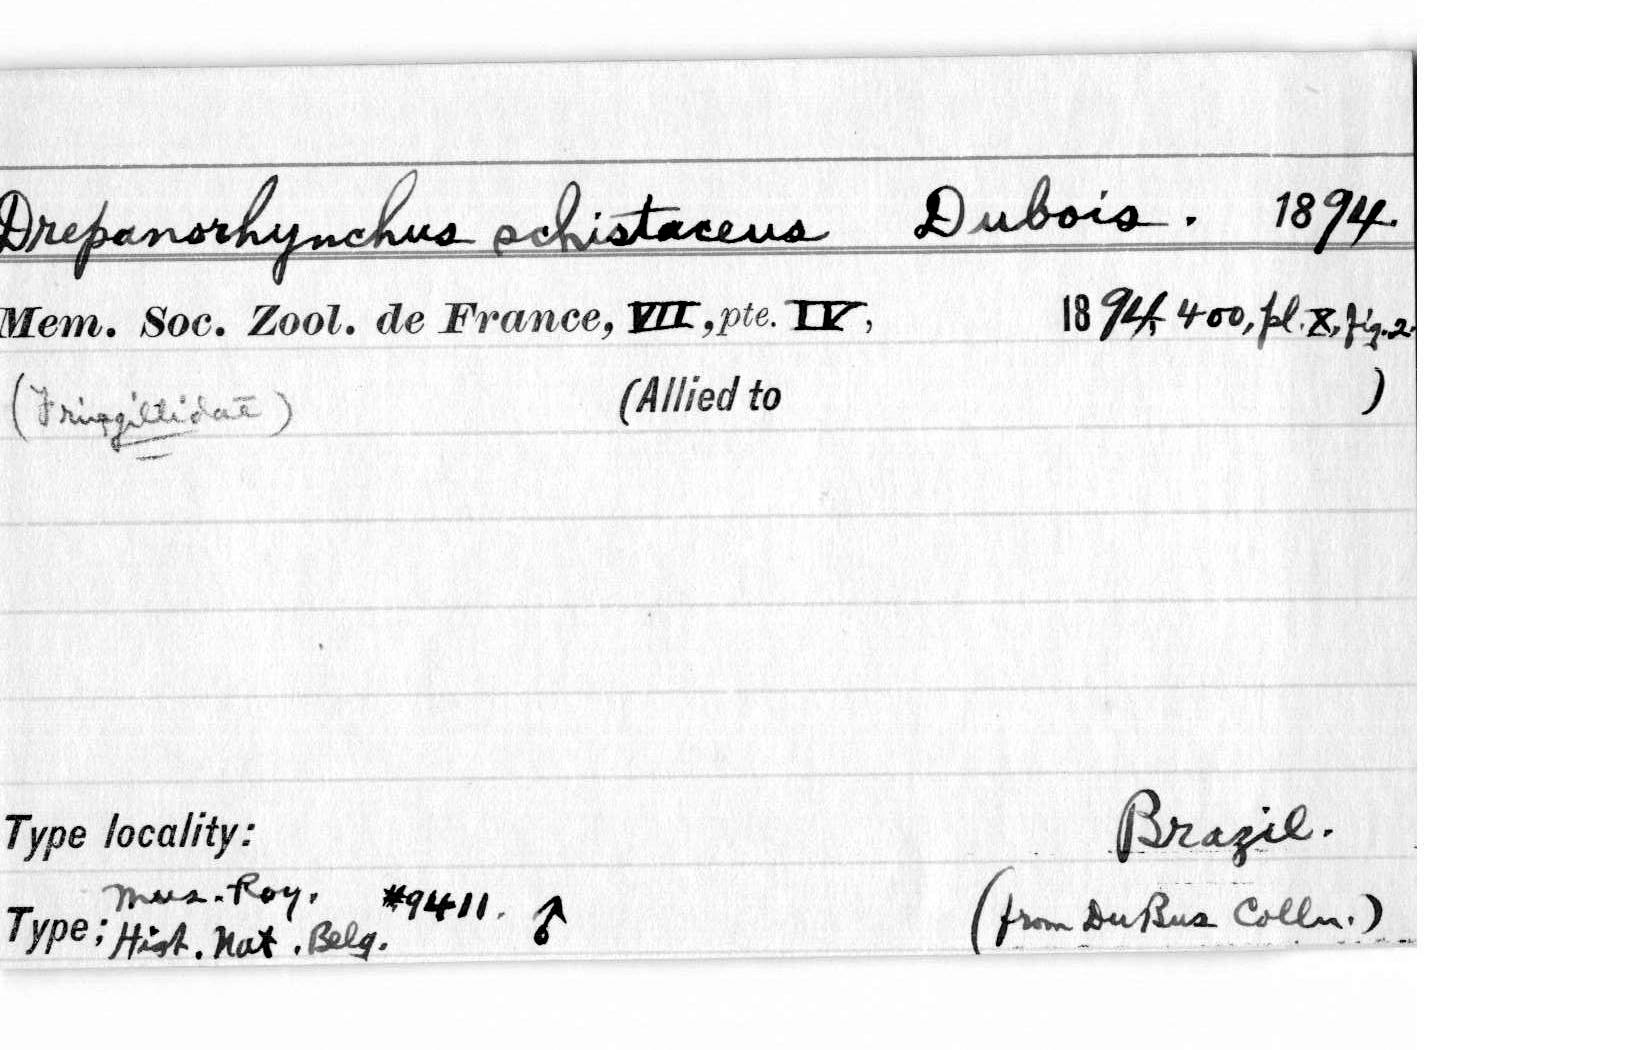 Drepanorhynchus schistaceus Dubois. 1894.
Mem. Soc. Zool. de France, VII, pte. IV, 1894, 400, pl. X, fig. 2.
(Fringillidae) (Allied to )
Type locality: Brazil.
Type; Mus. Roy. Hist. Nat. Belg. #9411. ♂ (from DuBus Colln.)